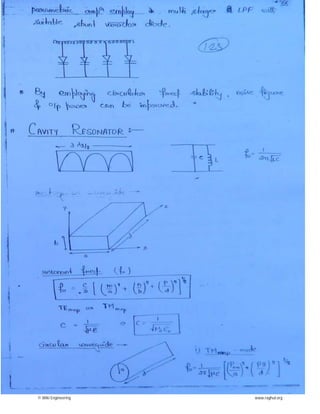 parametric amp's employ multi stages LPF with
suitable shunt varactor diode.
123
By employing circulator freq! stability, noise figure
& o/p power can be improved.
CAVITY RESONATOR :—
3 λg/2
C L
f₀ = 1 / 2π√LC
Rectangular waveguide →
Y
Z
X
b
a
resonant freq. (f₀)
f₀ = c/2 [ (m/a)² + (n/b)² + (p/d)² ]^½
TEmnp or TMmnp
C = 1/√με
C = 1/√μ₀ε₀
Circular waveguide →
a
d
i) TMmnp mode
f₀ = 1/2π√με [ (Pnm/a)² + (pπ/d)² ]^½
© Wiki Engineering www.raghul.org